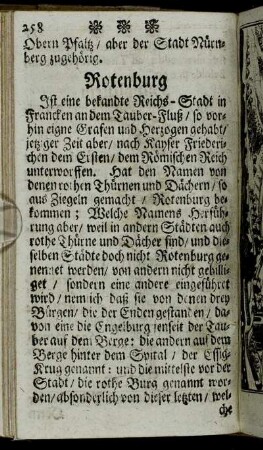 258 * * *
Obern Pfaltz / aber der Stadt Nürn-
berg zugehörig.
Rotenburg
Ist eine bekandte Reichs-Stadt in
Francken an dem Tauber-Fluß / so vor-
hin eigne Grafen und Hertzogen gehabt /
jetziger Zeit aber / nach Kayser Friederi-
chen dem Ersten / dem Römischen Reich
unterworffen. Hat den Namen von
denen rothen Thürnen und Dächern / so
aus Ziegeln gemacht / Rotenburg be-
kommen ; Welche Namens Herfüh-
rung aber / weil in andern Städten auch
rothe Thürne und Dächer sind / und die-
selben Städte doch nicht Rotenburg ge-
nennet werden / von andern nicht gebilli-
get / sondern eine andere eingeführet
wird / nemlich daß sie von denen drey
Bürgen / die der Enden gestanden / da-
von eine die Engelburg jenseit der Tau-
ber auf dem Berge : die andern auf dem
Berge hinter dem Spital / der Essig-
Krug genannt : und die mittelste vor der
Stadt / die rothe Burg genannt wor-
den / absonderlich von dieser letzten / wel-
che